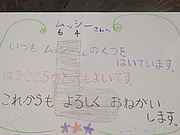 ムッシーさんへ
6 4
いつも ムッシーさんのくつを
はいています。
はきごこちがとてもよいです。
これからも よろしく おねがい
します。